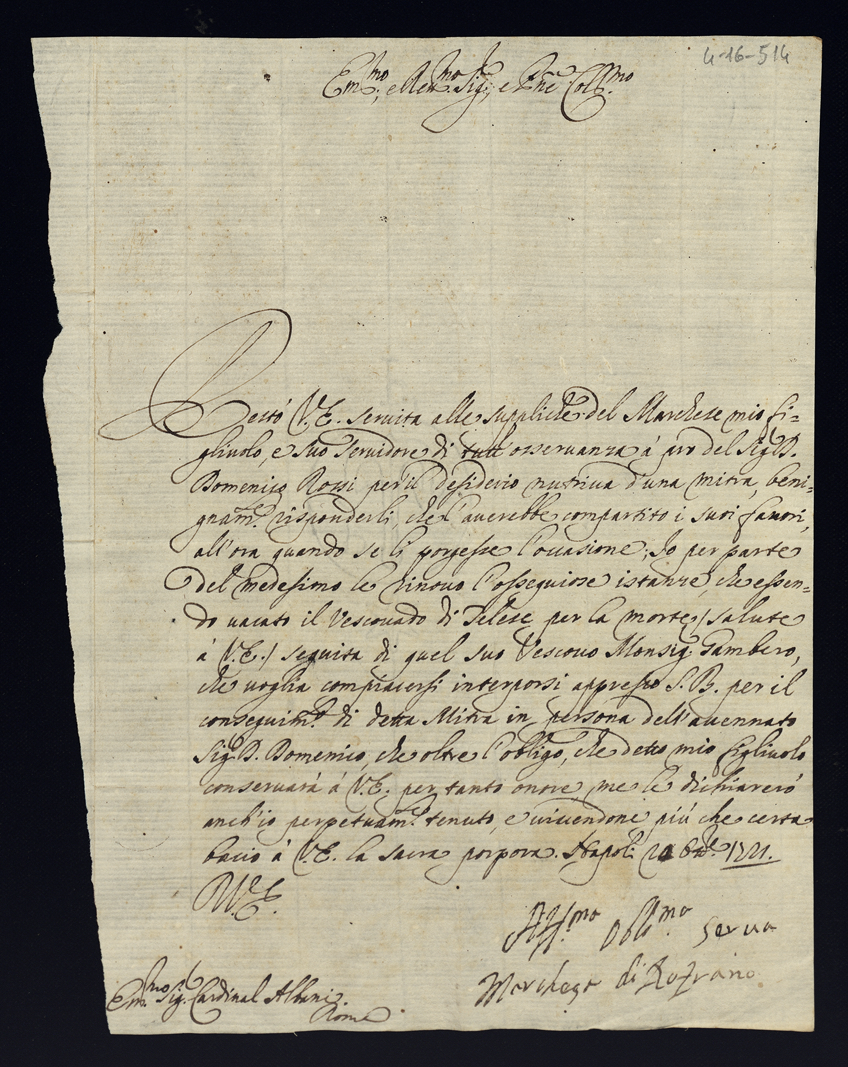 4-16-514
Em.mo, e Rev.mo Sig.r, e P.rone Coll.mo
Restò V.E. servita alle suppliche del Marchese mio fi=
gliuolo, e suo servidore di tutt'osservanza à prò del Sig.r D.
Domenico Rossi per il desiderio nutriva d'una mitra, beni=
gnam.te risponderli, che l'averebbe compartito i suoi favori,
all'ora quando se li porgesse l'occasione; Io per parte
del medesimo le rinovo l'ossequiose istanze, che essen=
do vacato il Vescovado di Telese per la morte / salute
à V.E. / seguita di quel suo Vescovo Monsig.r Gambero,
che voglia compiacersi interporsi appresso S.B. per il
conseguim.to di detta Mitra in persona dell'avennato
Sig.r D. Domenico, che oltre l'obligo, che detto mio figliuolo
conservarà à V.E. per tanto onore, me le dichiarerò
anch'io perpetuam.te tenuto, e vivendone più che certa
bacio à V.E. la sacra porpora. Napoli 8bre 1721.
D.V.E.
Aff.ma Obl.ma serva
Marchesa di Rofrano
Em.mo Sig.r Cardinal Albani.
Roma